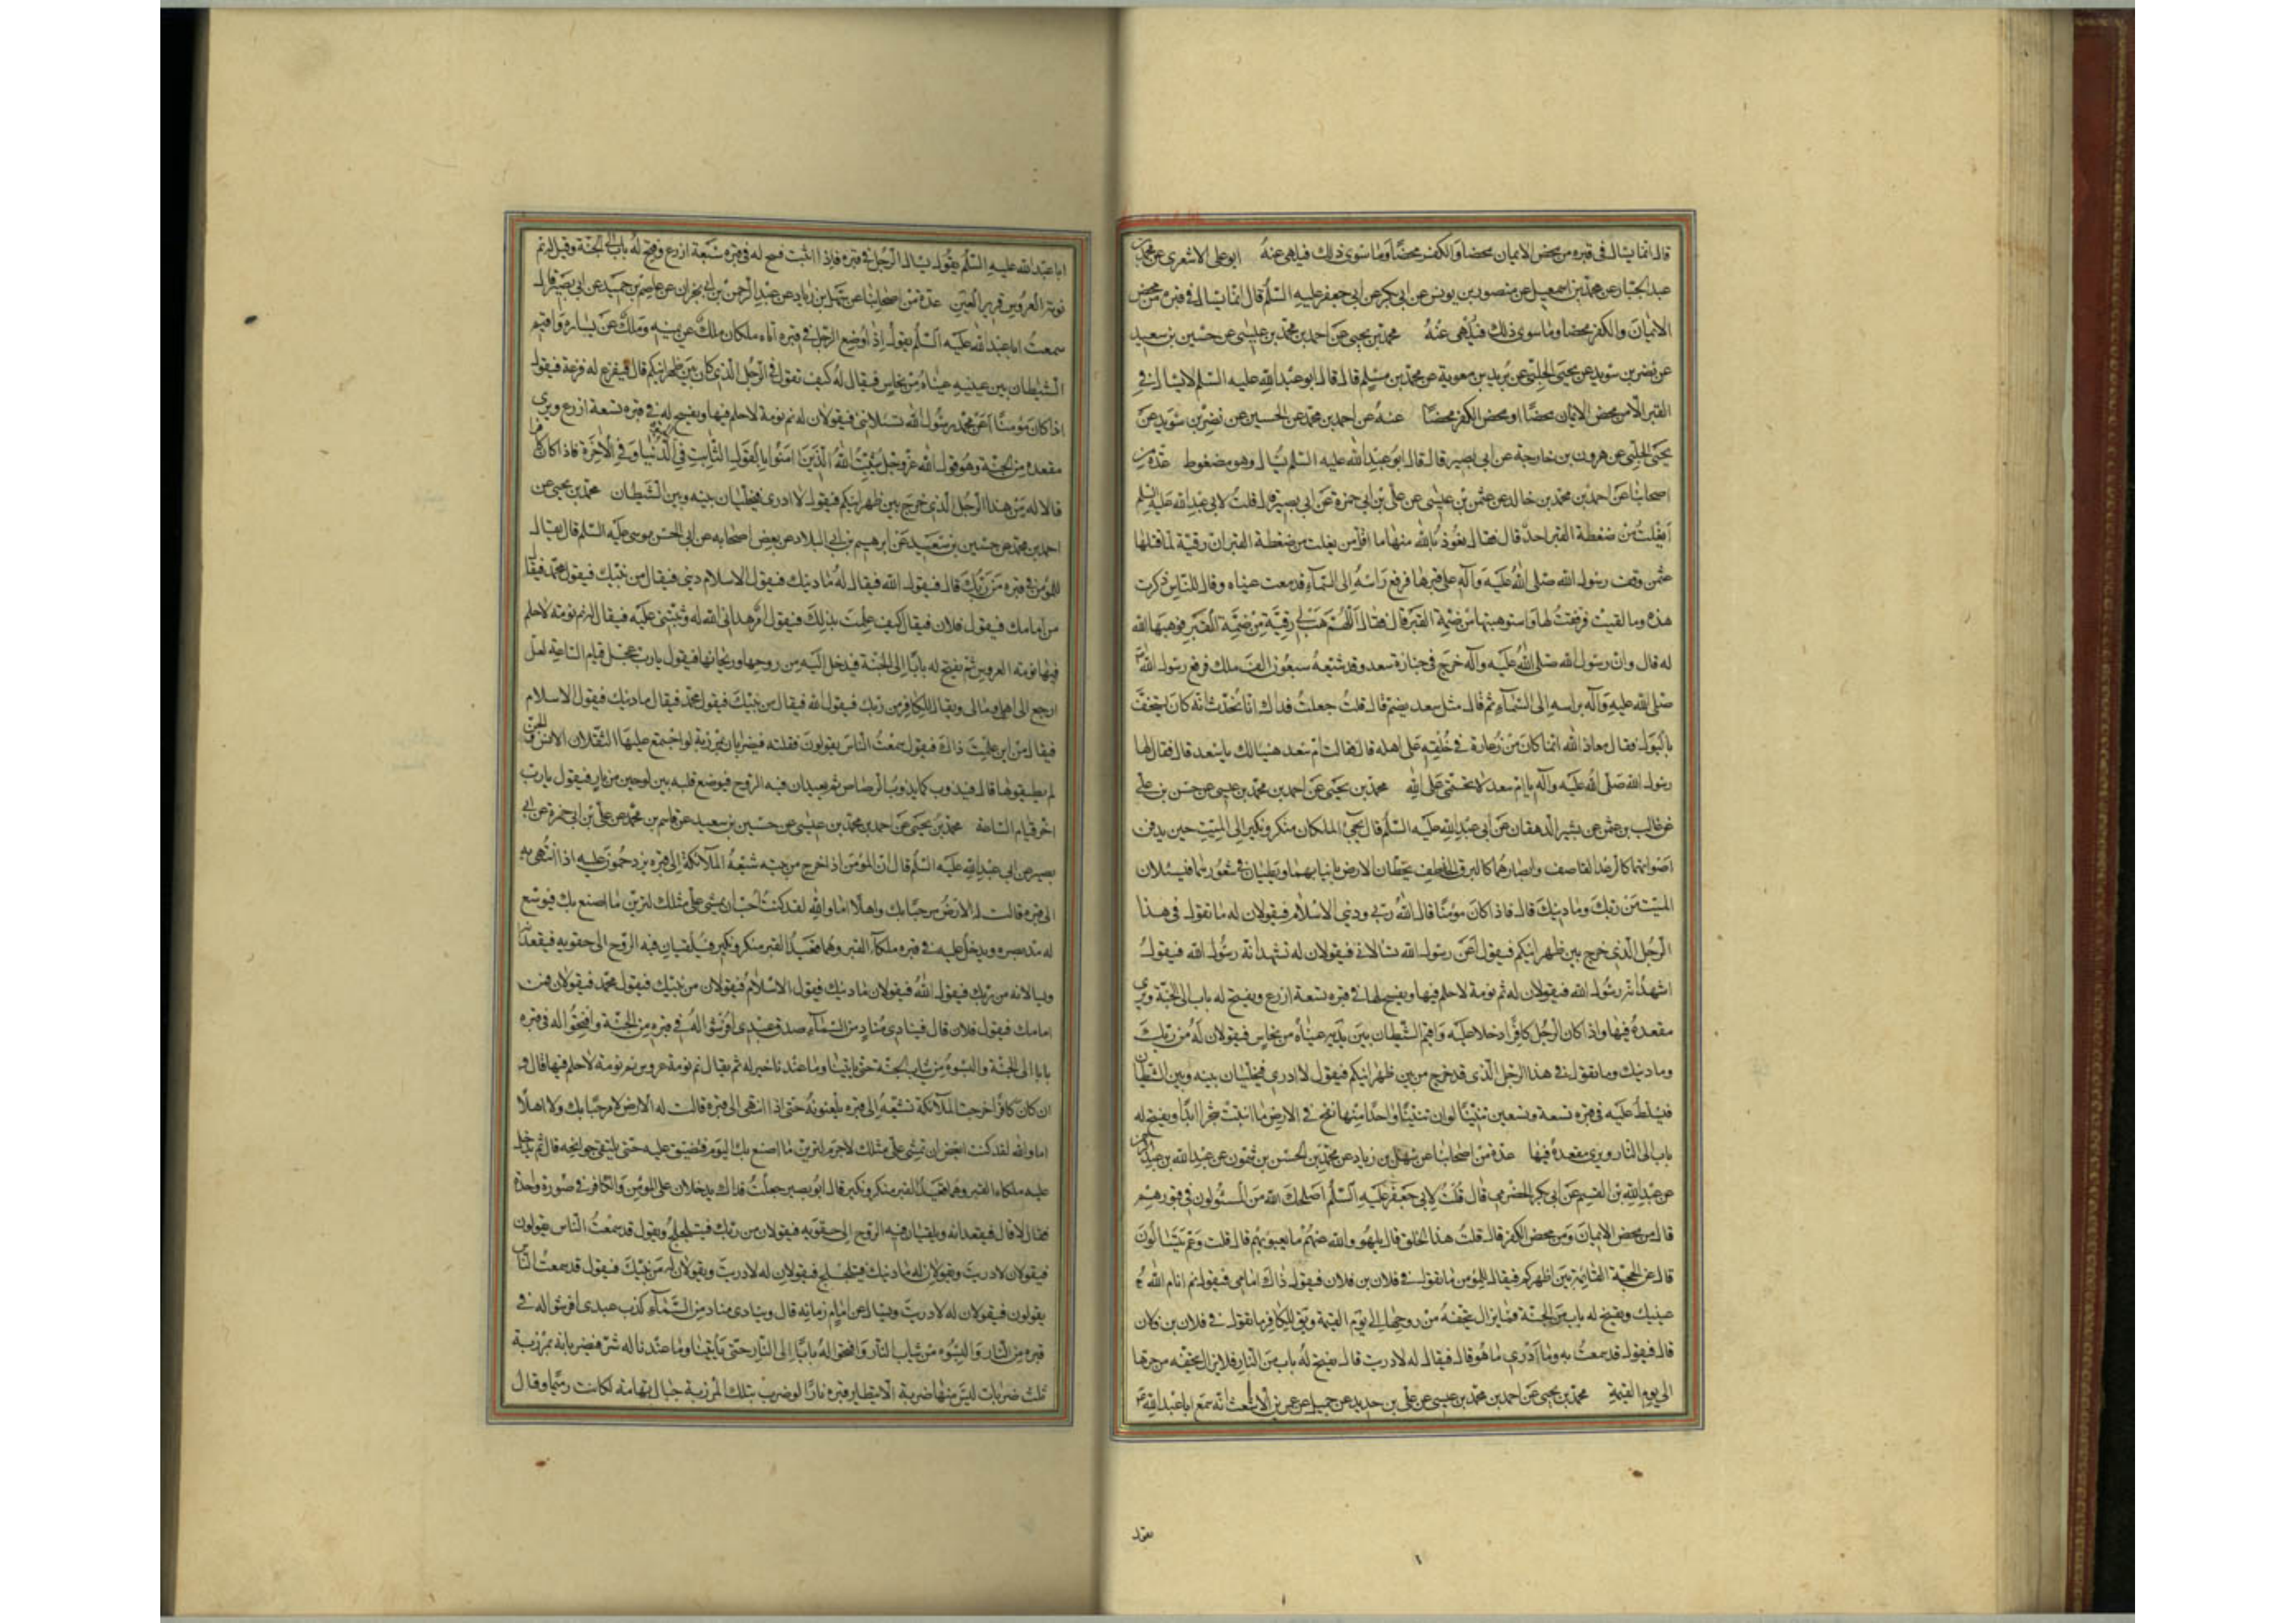 قال انما يسال فى قبره من محض الايمان محضا والكفر محضا وما سوى ذلك فيلهى عنه ابو على الاشعرى عن محمد بن
عبد الجبار عن محمد بن اسمعيل عن منصور بن يونس عن ابى بكر عن ابى جعفر عليه السلم قال انما يسال فى قبره من محض
الايمان والكفر محضا وما سوى ذلك فيلهى عنه محمد بن يحيى عن احمد بن محمد بن عيسى عن حسين بن سعيد
عن نضر بن سويد عن يحيى الحلبى عن بريد بن معوية عن محمد بن مسلم قال قال ابو عبد الله عليه السلم لا يسال فى
القبر الا من محض الايمان محضا او محض الكفر محضا عنه عن احمد بن محمد عن الحسين عن نضر بن سويد عن
يحيى الحلبى عن هرون بن خارجة عن ابى بصير قال قال ابو عبد الله عليه السلم يسال وهو مضغوط عدة من
اصحابنا عن احمد بن محمد بن خالد عن عثمن بن عيسى عن على بن ابى حمزة عن ابى بصير قال قلت لابى عبد الله عليه السلم
ايفلت من ضغطة القبر احد قال فقال نعوذ بالله منها ما اقل من يفلت من ضغطة القبر ان رقية لما قتلها
عثمن وقف رسول الله صلى الله عليه وآله على قبرها فرفع راسه الى السمآء فدمعت عيناه وقال للناس ذكرت
هذه وما لقيت فرققت لها واستوهبتها من ضمة القبر قال فقال اللهم هب لى رقية من ضمة القبر فوهبها الله
له قال وان رسول الله صلى الله عليه وآله خرج فى جنازة سعد وقد شيعه سبعون الف ملك فرفع رسول الله
صلى الله عليه وآله راسه الى السمآء ثم قال مثل سعد يضم قال قلت جعلت فداك انا نحدث انه كان يستخف
بالبول فقال معاذ الله انما كان من زعارة فى خلقه على اهله قال فقالت ام سعد هنيئا لك يا سعد قال فقال لها
رسول الله صلى الله عليه وآله يا ام سعد لا تحتمى على الله محمد بن يحيى عن احمد بن محمد بن عيسى عن حسن بن على
عن غالب بن عثمن عن بشير الدهقان عن ابى عبد الله عليه السلم قال يجئ الملكان منكر ونكير الى الميت حين يدفن
اصواتهما كالرعد القاصف وابصارهما كالبرق الخاطف يخطان الارض بانيابهما ويطيان فى شعورهما فيسئلان
الميت من ربك وما دينك قال فاذا كان مؤمنا قال الله ربى ودينى الاسلام فيقولان له ما تقول فى هذا
الرجل الذى خرج بين ظهرانيكم فيقول اعن رسول الله تسالانى فيقولان له تشهد انه رسول الله فيقول
اشهد انه رسول الله فيقولان له نم نومة لا حلم فيها ويفسح له فى قبره تسعة اذرع ويفتح له باب الى الجنة ويرى
مقعده فيها واذا كان الرجل كافرا دخلا عليه واقيم الشيطان بين يديه عيناه من نحاس فيقولان له من ربك
وما دينك وما تقول فى هذا الرجل الذى قد خرج من بين ظهرانيكم فيقول لا ادرى فيخليان بينه وبين الشيطان
فيسلط عليه فى قبره تسعة وتسعين تنينا لو ان تنينا واحدا منها نفخ فى الارض ما انبتت شجرا ابدا ويفتح له
باب الى النار ويرى مقعده فيها عدة من اصحابنا عن سهل بن زياد عن محمد بن الحسن بن شمون عن عبد الله بن عبد الرحمن
عن عبد الله بن القسم عن ابى بكر الحضرمى قال قلت لابى جعفر عليه السلم اصلحك الله من المسئولون فى قبورهم
قال من محض الايمان ومن محض الكفر قال قلت هذا الخلق قال يلهو والله عنهم ما يعبؤ بهم قال قلت وعم يسالون
قال عن الحجة القائمة بين اظهركم فيقال للمؤمن ما تقول فى فلان بن فلان فيقول ذاك امامى فيقول نم انام الله
عينيك ويفتح له باب من الجنة فما يزال يتحفه من روحها الى يوم القيمة ويق للكافر ما تقول فى فلان بن فلان
قال فيقول قد سمعت به وما ادرى ما هو قال فيقال له لا دريت قال يفتح له باب من النار فلا يزال يتحفه من حرها
الى يوم القيمة محمد بن يحيى عن احمد بن محمد بن عيسى عن على بن حديد عن جميل عن عمر بن الاشعث انه سمع ابا عبد الله ع
يقول
ابا عبد الله عليه السلم يقول يسال الرجل فى قبره فاذا اثبت فسح له فى قبره سبعة اذرع وفتح له باب الى الجنة وقيل له نم
نومة العروس قرير العين عدة من اصحابنا عن سهل بن زياد عن عبد الرحمن بن ابى نجران عن عاصم بن حميد عن ابى بصير قال
سمعت ابا عبد الله عليه السلم يقول اذا وضع الرجل فى قبره اتاه ملكان ملك عن يمينه وملك عن يساره واقيم
الشيطان بين عينيه عيناه من نحاس فيقال له كيف تقول فى الرجل الذى كان بين ظهرانيكم قال فيفزع له فزعة فيقول
اذا كان مؤمنا اعن محمد رسول الله تسئلانى فيقولان له نم نومة لا حلم فيها ويفسح له فى قبره تسعة اذرع ويرى
مقعده من الجنة وهو قول الله عز وجل يثبت الله الذين امنوا بالقول الثابت فى الدنيا وفى الآخرة فاذا كان كافرا
قالا له من هذا الرجل الذى خرج بين ظهرانيكم فيقول لا ادرى فيخليان بينه وبين الشيطان محمد بن يحيى عن
احمد بن محمد عن حسين بن سعيد عن ابرهيم بن ابى البلاد عن بعض اصحابه عن ابى الحسن موسى عليه السلم قال يقال
للمؤمن فى قبره من ربك قال فيقول الله فيقال له ما دينك فيقول الاسلام دينى فيقال من نبيك فيقول محمد فيقال
من امامك فيقول فلان فيقال كيف علمت بذلك فيقول امر هدانى الله له وثبتنى عليه فيقال له نم نومة لا حلم
فيها نومة العروس ثم يفتح له بابا الى الجنة فيدخل اليه من روحها وريحانها فيقول يا رب عجل قيام الساعة لعلى
ارجع الى اهلى ومالى ويقال للكافر من ربك فيقول الله فيقال من نبيك فيقول محمد فيقال ما دينك فيقول الاسلام
فيقال من اين علمت ذاك فيقول سمعت الناس يقولون فقلته فيضربان بمرزبة لو اجتمع عليها الثقلان الانس والجن
لم يطيقوها قال فيذوب كما يذوب الرصاص ثم يعيدان فيه الروح فيوضع قلبه بين لوحين من نار فيقول يا رب
اخر قيام الساعة محمد بن يحيى عن احمد بن محمد بن عيسى عن حسين بن سعيد عن قاسم بن محمد عن على بن ابى حمزة عن ابى
بصير عن ابى عبد الله عليه السلم قال ان المؤمن اذا خرج من بيته شيعه الملآئكة الى قبره يزدحمون عليه اذا انتهى به
الى قبره قالت له الارض مرحبا بك واهلا اما والله لقد كنت احب ان يمشى على مثلك لترين ما اصنع بك فيوسع
له مد بصره ويدخل عليه فى قبره ملكا القبر وهما قعيدا القبر منكر ونكير فيلقيان فيه الروح الى حقويه فيقعدانه
ويسالانه من ربك فيقول الله فيقولان ما دينك فيقول الاسلام فيقولان من نبيك فيقول محمد فيقولان فمن
امامك فيقول فلان قال فينادى مناد من السمآء صدق عبدى افرشوا له فى قبره من الجنة وافتحوا له فى قبره
بابا الى الجنة والبسوه من ثياب الجنة حتى ياتينا وما عندنا خير له ثم يقال نم نومة عروس نم نومة لا حلم فيها قال و
ان كان كافرا خرجت الملآئكة تشيعه الى قبره يلعنونه حتى اذا انتهى الى قبره قالت له الارض لا مرحبا بك ولا اهلا
اما والله لقد كنت ابغض ان يمشى على مثلك لا جرم لترين ما اصنع بك اليوم فتضيق عليه حتى يلتقى جوانحه قال ثم يدخل
عليه ملكا القبر وهما قعيدا القبر منكر ونكير قال ابو بصير جعلت فداك يدخلان على المؤمن والكافر فى صورة واحدة
فقال لا قال فيقعدانه ويلقيان فيه الروح الى حقويه فيقولان من ربك فيتلجلج ويقول قد سمعت الناس يقولون
فيقولان لا دريت ويقولان له ما دينك فيتلجلج فيقولان له لا دريت ويقولان له من نبيك فيقول قد سمعت الناس
يقولون فيقولان له لا دريت ويسال عن امام زمانه قال وينادى مناد من السمآء كذب عبدى افرشوا له فى
قبره من النار والبسوه من ثياب النار وافتحوا له بابا الى النار حتى ياتينا وما عندنا له شر فيضربانه بمرزبة
ثلث ضربات ليس منها ضربة الا يتطاير قبره نارا لو ضرب بتلك المرزبة جبال تهامة لكانت رميما وقال